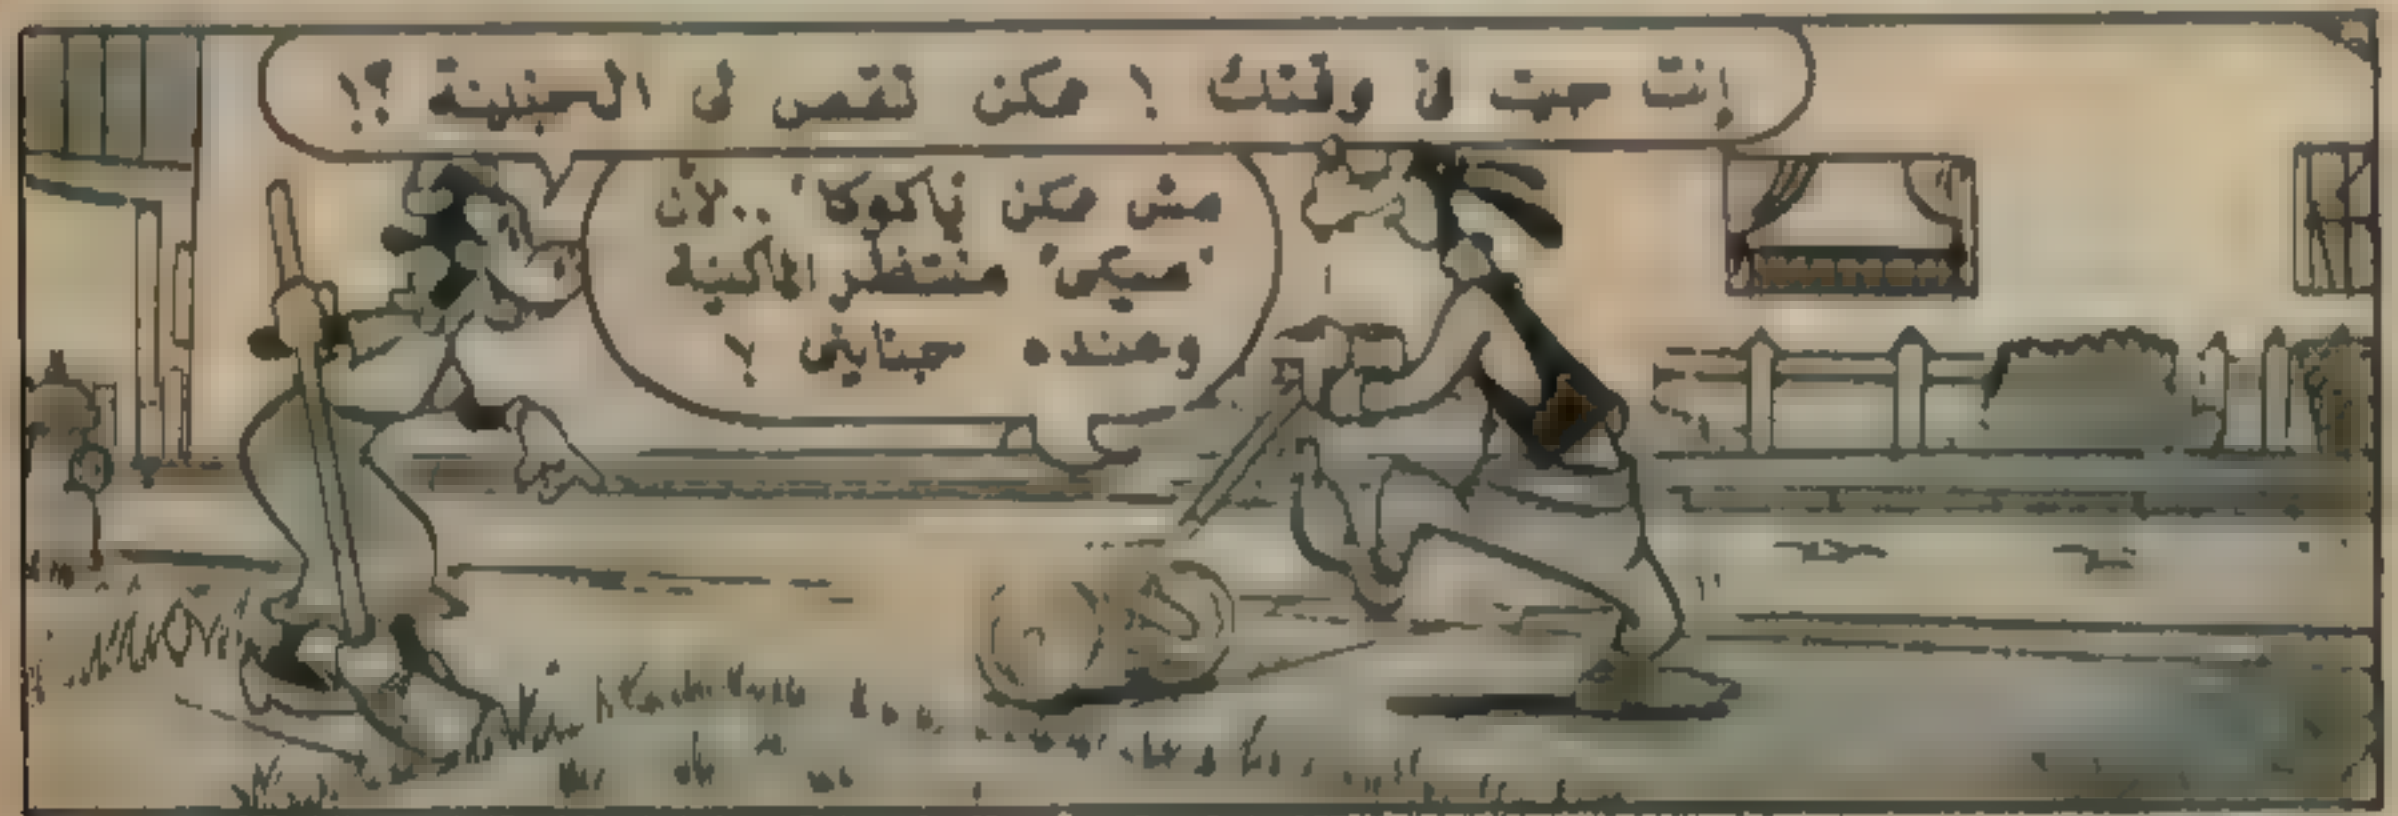 إنت جيت في وقتك ! ممكن تقص لى الجنينة ؟!
مش ممكن ياكوكا .. لأن
"ميكى" منتظر الماكينة
وعنده جناينى ؟